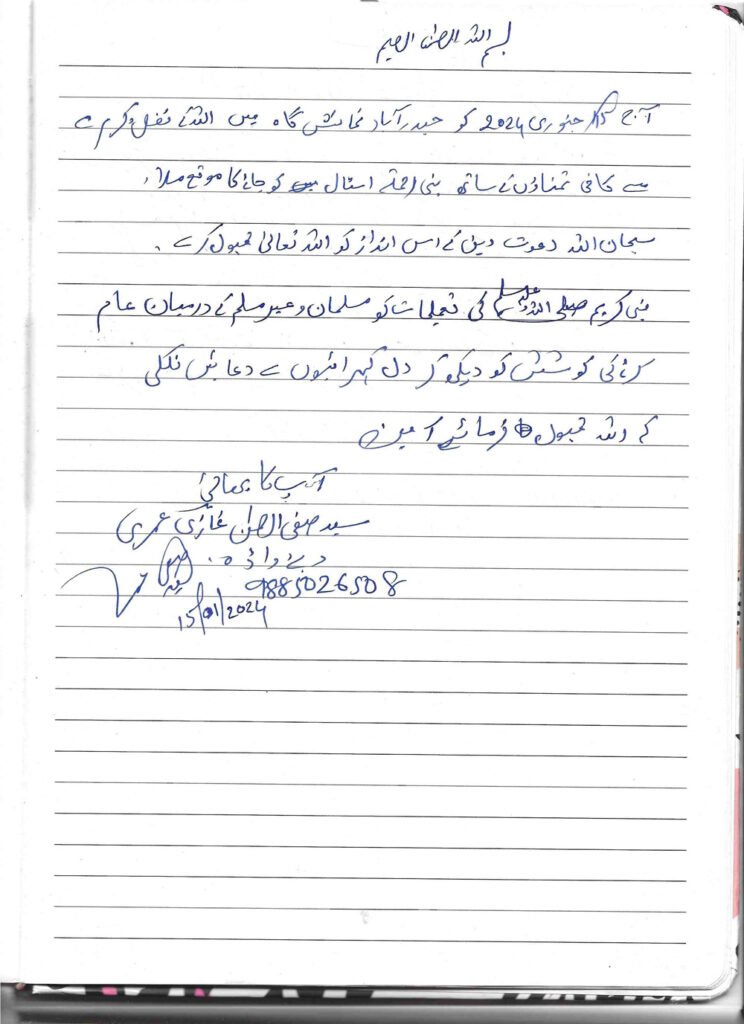 بسم اللہ الرحمٰن الرحیم
آج 15/ جنوری 2024 کو حیدرآباد نمائش گاہ میں اللہ کے فضل و کرم سے
سے کافی تمناؤں کے ساتھ نبی رحمتؐ اسٹال کو جانے کا موقع ملا۔
سبحان اللہ دعوت دین کے اس انداز کو اللہ تعالیٰ قبول کرے۔
نبی کریم صلی اللہ علیہ وسلم کی تعلیمات کو مسلمان و غیر مسلم کے درمیان عام
کرنے کی کوشش کو دیکھ کر دل گہرائیوں سے دعائیں نکلی
کہ اللہ قبول فرمائے آمین
آپ کا بھائی
سید صفی الرحمٰن غازی عمری
9885026508
15/01/2024